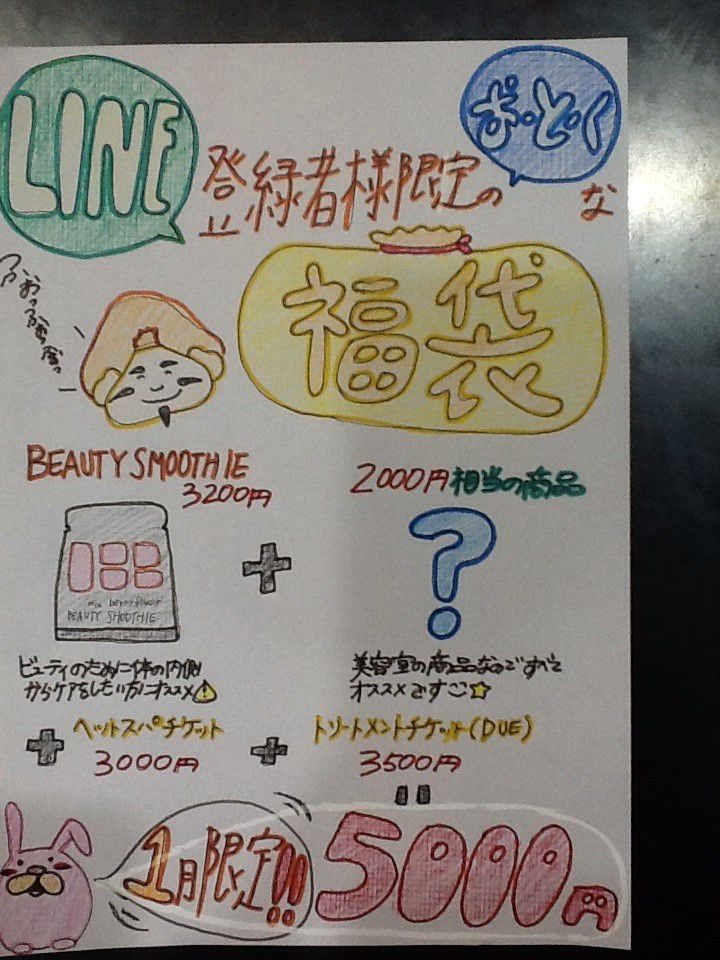 LINE
登録者様限定の
お・と・くな
福袋
BEAUTY SMOOTHIE
3200円
2000円相当の商品
mix berry flavor
BEAUTY SMOOTHIE
+
?
ビューティのために体の内側
からケアをしたい方にオススメ
美容室の商品なのですべて
オススメですご☆
+ ヘッドスパチケット
3000円
+ トリートメントチケット(DUE)
3500円
1月限定!!
5000円